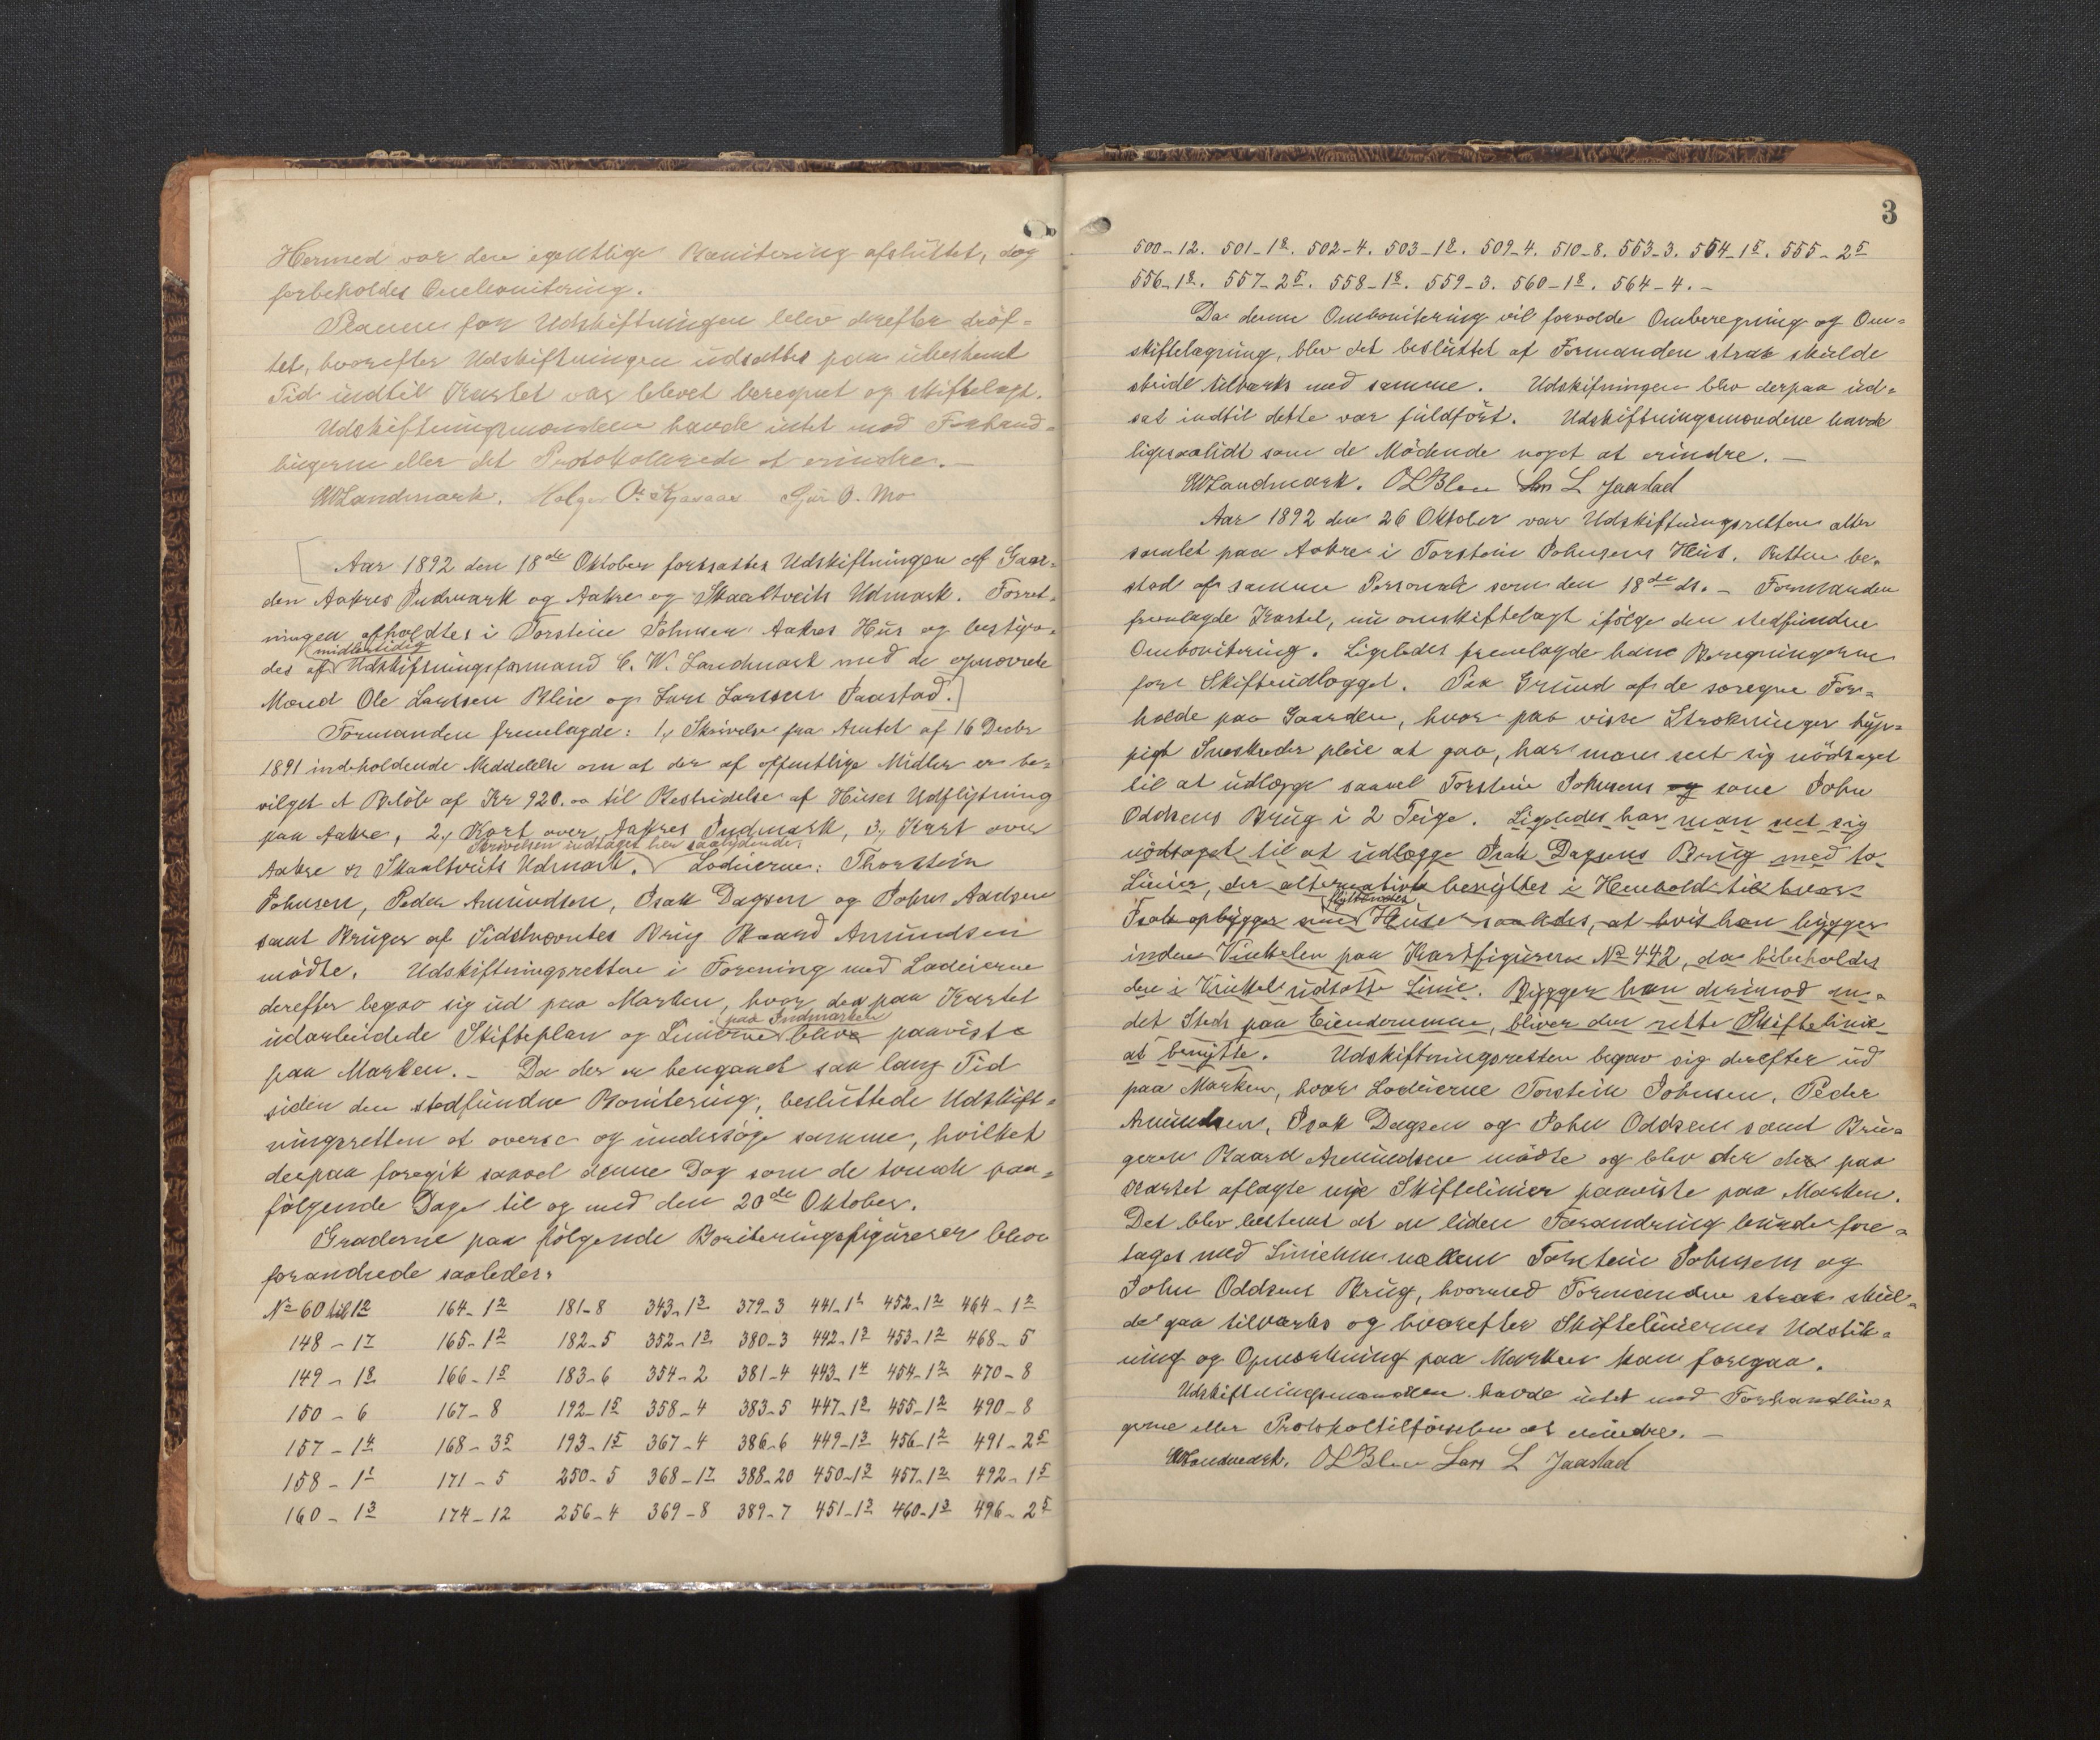 Hermed var den egentlige Bonitering afsluttet, dog
forbeholdes Ombonitering.
Planen for Udskiftningen blev derefter dröf-
tet, hvorefter Udskiftningen udsattes paa ubestemt
Tid indtil Kartet var blevet beregnet og skiftelagt.
Udskiftningsmændene havde intet mod Forhand-
lingerne eller det Protokollerede at erindre.-
CWLandmark. Helge O. Sjur O. Mo
Aar 1892 den 18de Oktober fortsattes Udskiftningen af Gaar-
den Aakres Indmark og Aakre og Skaaltveits Udmark. Forret-
ningen afholdtes i Torstein Johnsen Aakres Hus og bestyre-
midlertidig
des af Udskiftningsformand C. W. Landmark med de opnævnte
Mænd Ole Larssen Bleie og Lars Larssen Jaastad.
Formanden fremlagde: 1, Skrivelse fra Amtet af 16 Decbr
1891 indeholdende Meddelelse om at der af offentlige Midler er be-
vilget et Belöb af Kr 920.00 til Bestridelse af Huses Udflytning
paa Aakre, 2, Kart over Aakres Indmark, 3, Kart over
Skrivelsen indtaget her saalydende:
Aakre og Skaaltveits Udmark. Lodeierne: Thorstein
Johnsen, Peder Amundsen, Isak Dagsen og John Aadsen
samt Bruger af Sidstnævntes Brug Baard Amundsen
mödte. Udskiftningsretten i Forening med Lodeierne
derefter begav sig ud paa Marken, hvor den paa Kartet
paa Indmarken
udarbeidede Skifteplan og Linierne blev paaviste
paa Marken.- Da der er hengaaet saa lang Tid
siden den stedfundne Bonitering, besluttede Udskift-
ningsretten at overse og undersöge samme, hvilket
derpaa foregik saavel denne Dag som de tvende paa-
fölgende Dage til og med den 20de Oktober.
Graderne paa fölgende Boniteringsfigurer blev
forandrede saaledes:
No 60 til 12 164-12 181-8 343-13 379-3 441-1 452-12 464-12
148-17 165-12 182-5 352-13 380-3 442-12 453-12 468-5
149-18 166-15 183-6 354-2 381-4 443-14 454-12 470-8
150-6 167-8 192-15 358-4 383-5 447-12 455-12 490-8
157-14 168-35 193-15 367-4 386-6 449-13 456-12 491-25
158-11 171-5 250-5 368-17 388-20 450-13 457-12 492-15
160-13 174-12 256-4 369-8 389-7 451-13 460-13 496-25
3
500-12. 501-18. 502-4. 503-18. 509-4. 510-8. 553-3. 554-15. 555-25
556-18. 557-25. 558-18. 559-3. 560-18. 564-4.-
Da denne Ombonitering vil forvolde Omberegning og Om-
skiftelægning, blev det besluttet at Formanden strax skulde
skride tilværks med samme. Udskiftningen blev derpaa ud-
sat indtil dette var fuldfört. Udskiftningsmændene havde
ligesaalidt som de Mödende noget at erindre.-
CWLandmark. OLBleie Lars L Jaastad
Aar 1892 den 26 Oktober var Udskiftningsretten atter
samlet paa Aakre i Torstein Johnsens Hus. Retten be-
stod af samme Personale som den 18de ds.- Formanden
fremlagde Kartet, nu omskiftelagt ifölge den stedfundne
Ombonitering. Ligeledes fremlagde han Beregningerne
for Skifteudlægget. Paa Grund af de særegne For-
holde paa Gaarden, hvor paa visse Strækninger hyp-
pigt Sneskreder pleie at gaa, har man seet sig nödsaget
til at udlægge saavel Torstein Johnsens og som John
Oddsens Brug i 2 Teige. Ligeledes har man seet sig
nödsaget til at udlægge Isak Dagsens Brug med to
Linier, der alternativt benyttes i Henhold til hvor
flyttendes
Isak opbygger sine Huse saaledes, at hvis han bygger
inden Vinkelen paa Kartfiguren No 442, da bibeholdes
den i Vinkel udsatte Linie. Bygger han derimod an-
det Steds paa Eiendommen, bliver den rette Skiftelinie
at benytte. Udskiftningsretten begav sig derefter ud
paa Marken, hvor Lodeierne Torstein Johnsen, Peder
Amundsen, Isak Dagsen og John Oddsen samt Bru-
geren Baard Amundsen mödte og blev der de paa
Kartet aflagte nye Skiftelinier paaviste paa Marken.
Det blev bestemt at en liden Forandring burde fore-
tages med Linien mellem Torstein Johnsens og
John Oddsens Brug, hvormed Formanden strax skul-
de gaa tilværks og hvorefter Skifteliniernes Udstik-
ning og Opmærkning paa Marken kan foregaa.
Udskiftningsmændene havde intet mod Forhandlin-
gerne eller Protokoltilförselen at erindre.-
CWLandmark. OLBleie Lars L Jaastad